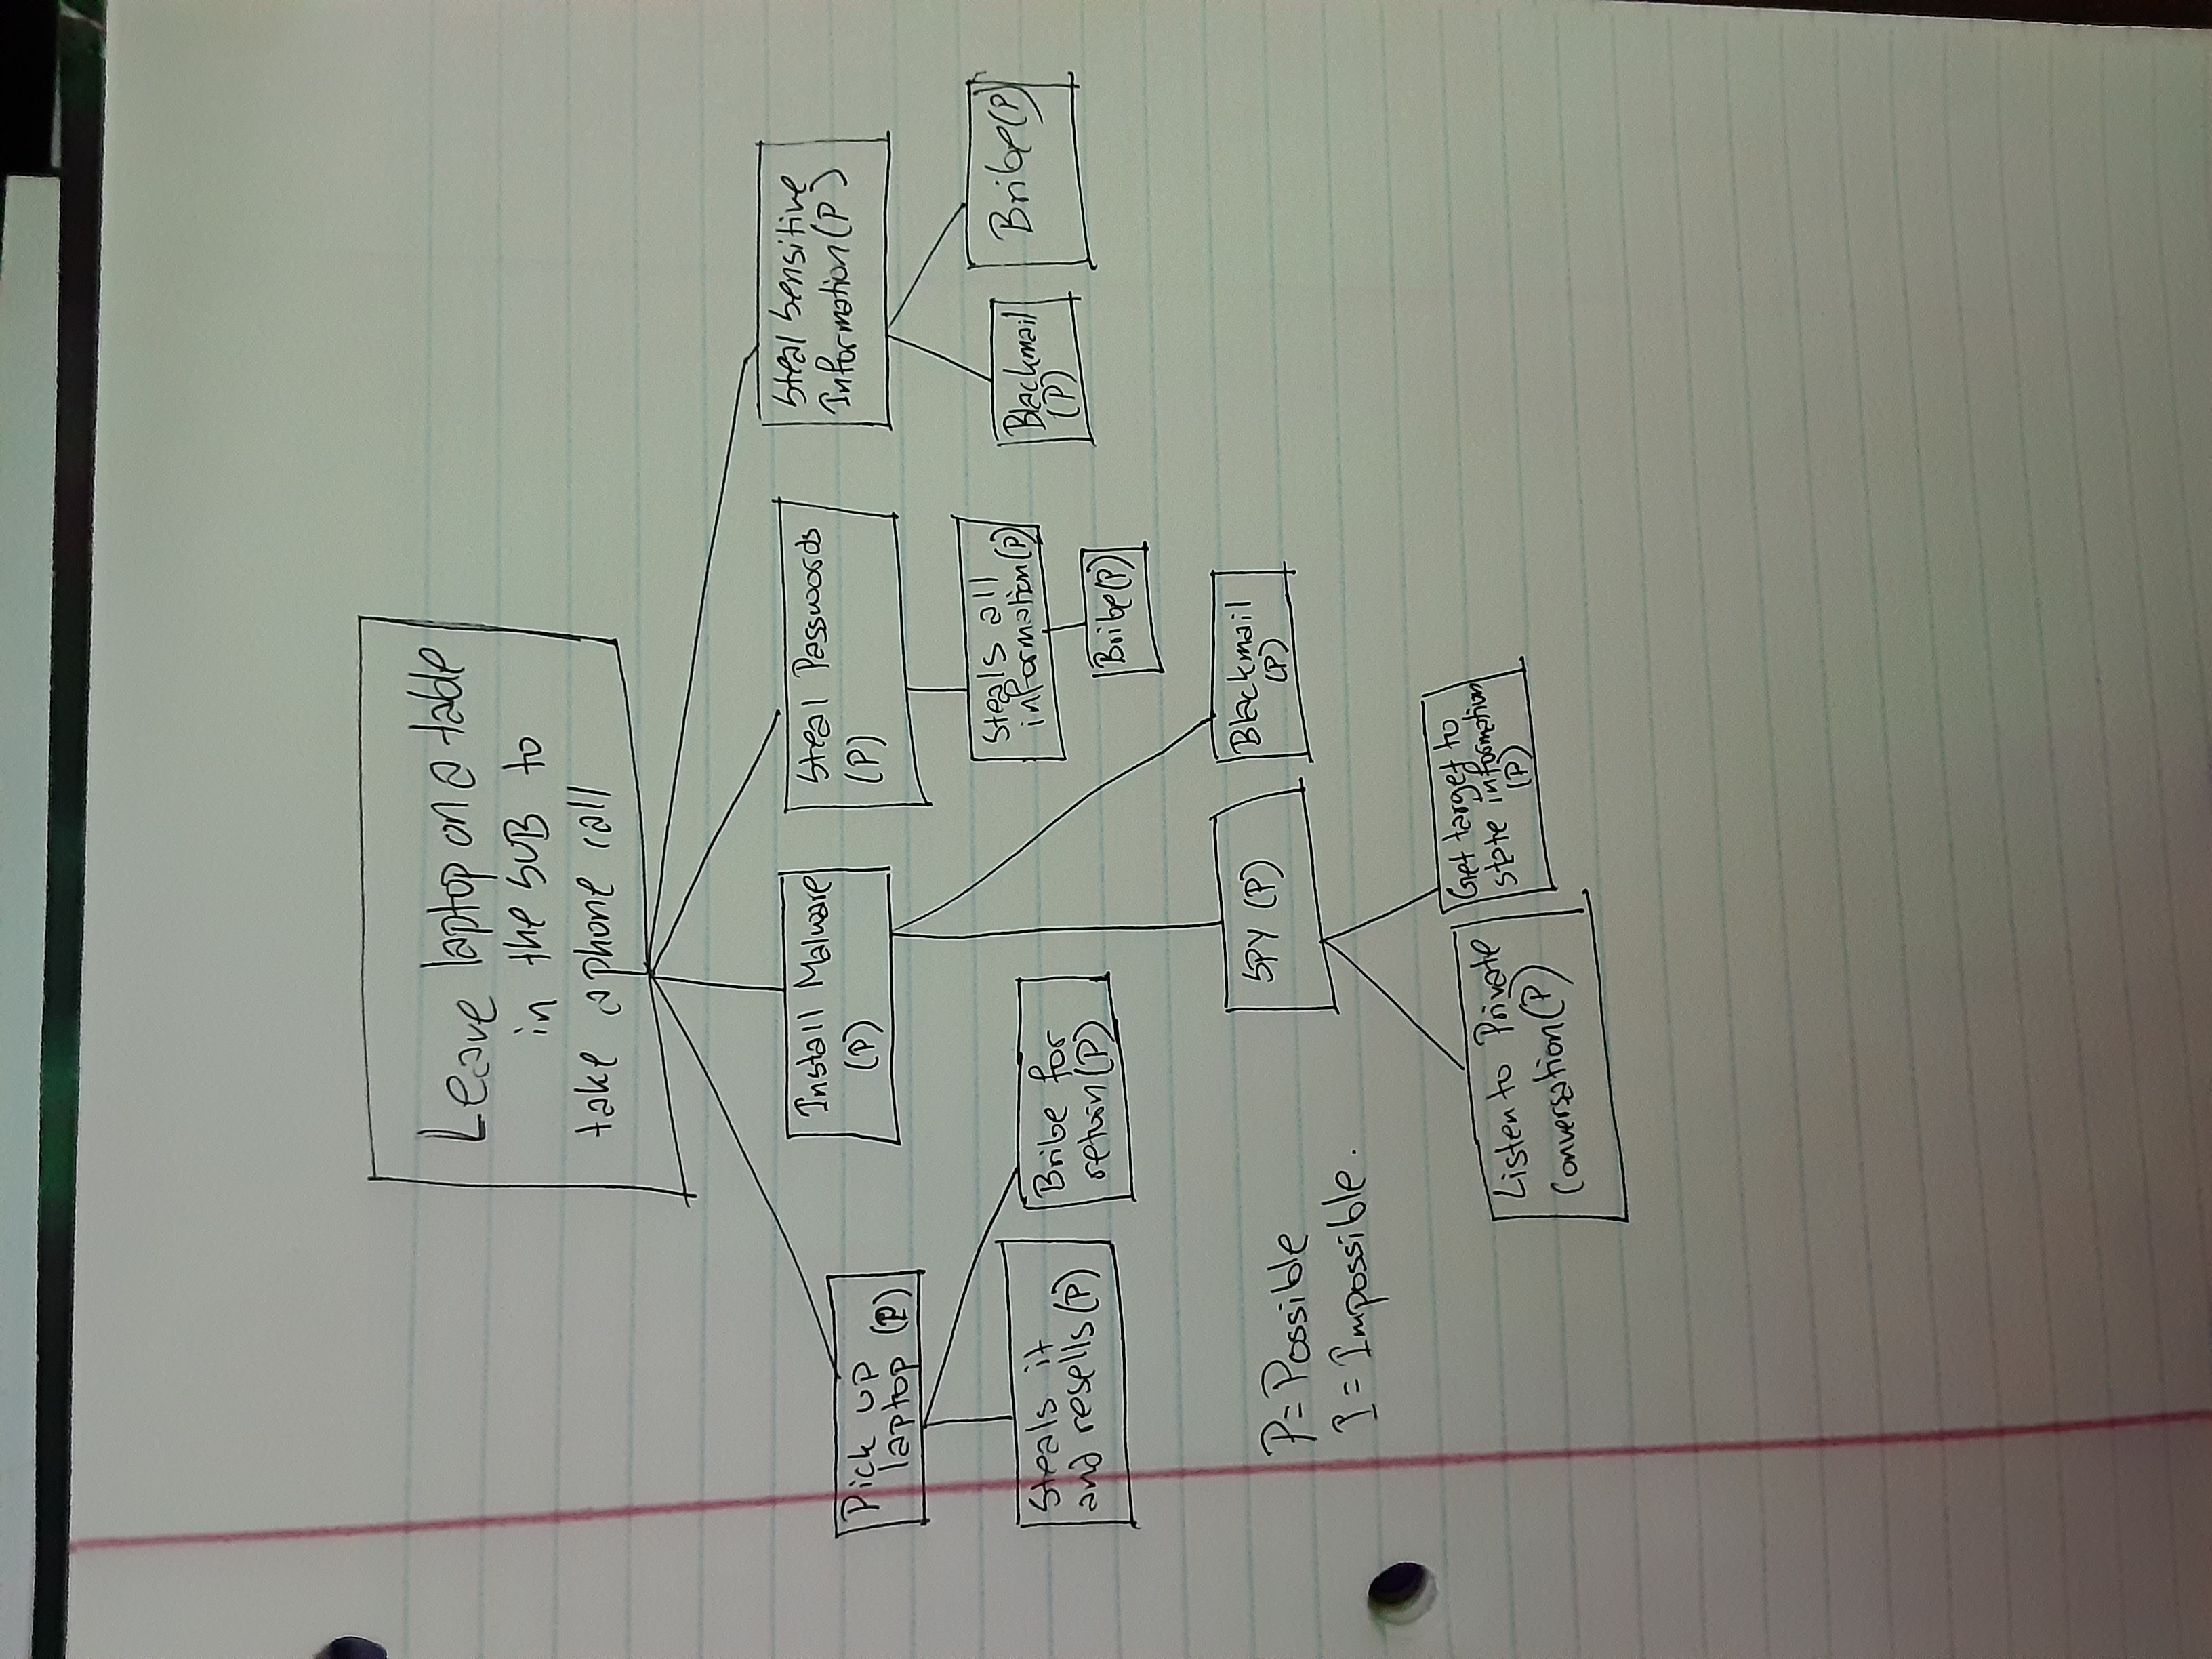 Leave laptop on a table
in the SUB to
take a phone call
Pick up
laptop (P)
Install Malware
(P)
Steal Passwords
(P)
Steal Sensitive
Information (P)
Steals it
and resells (P)
Bribe for
return (P)
Steals all
information (P)
Bribe (P)
Blackmail
(P)
Bribe (P)
SPY (P)
Blackmail
(P)
P = Possible
I = Impossible.
Listen to Private
Conversation (P)
Get target to
state information
(P)